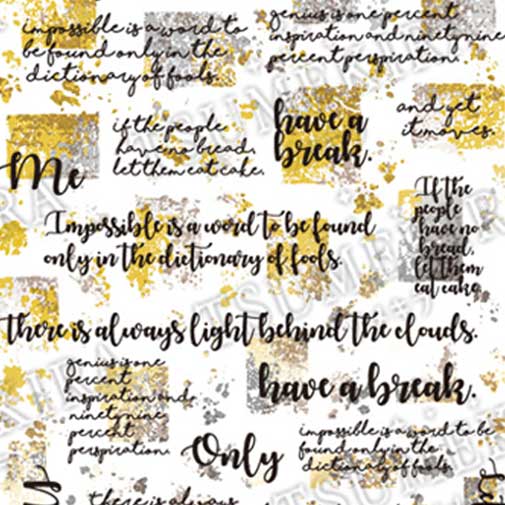 impossible is a word to
be found only in the
dictionary of fools.
genius is one percent
inspiration and ninety nine
percent perspiration.
if the people
have no bread,
let them eat cake.
have a
break.
and yet
it moves.
Me
If the
people
have no
bread,
let them
eat cake.
Impossible is a word to be found
only in the dictionary of fools.
there is always light behind the clouds.
genius is one
percent
inspiration and
ninety nine
percent
perspiration.
have a break.
Only
impossible is a word to be
found only in the
dictionary of fools.
there is always